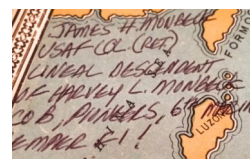 JAMES H. MONBECK
USAF COL (RET.)
LINEAL DESCENDENT
OF HARVEY L. MONBECK
CO B, PIONEERS, 6TH
SEMPER FI!
FORM
LUZON